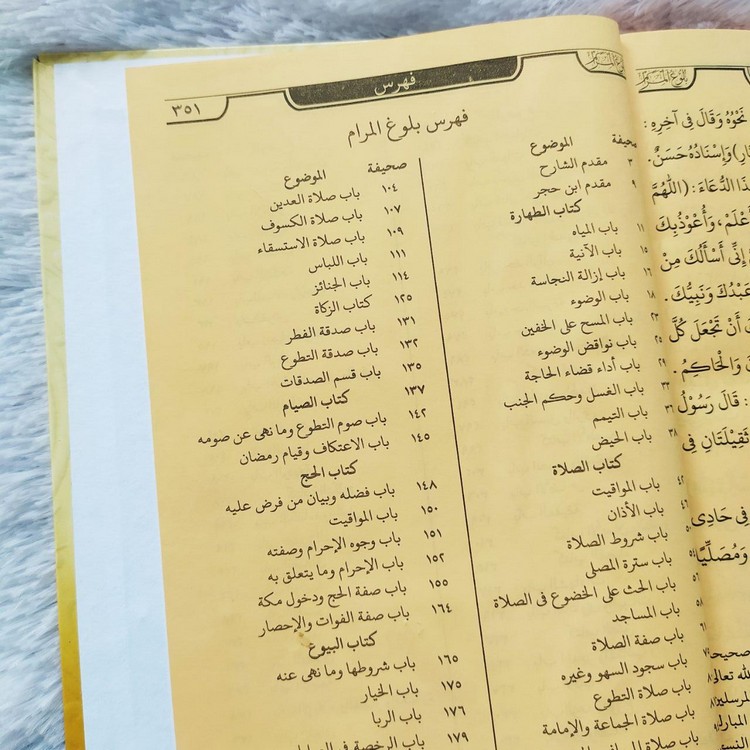 بلوغ المرام
نَحْوُهُ وَقَالَ فِي آخِرِهِ :
وَإِسْنَادُهُ حَسَنٌ .
الدُّعَاءَ : (اللَّهُمَّ
أَعْلَمْ، وَأَعُوْذُبِكَ
إِنِّي أَسْأَلُكَ مِنْ
عَبْدُكَ وَنَبِيُّكَ .
أَنْ تَجْعَلَ كُلَّ
وَالْحَاكِمُ .
: قَالَ رَسُوْلُ
ثَقِيْلَتَانِ فِي
فِي حَادِى
وَمُصَلِّيًا
بلوغ المرام
فهرس
٣٥١
فهرس بلوغ المرام
صحيفة الموضوع
٣ مقدم الشارح
٩ مقدم ابن حجر
كتاب الطهارة
١١ باب المياه
١٥ باب الآنية
١٦ باب إزالة النجاسة
١٨ باب الوضوء
٢٣ باب المسح على الخفين
٢٥ باب نواقض الوضوء
٢٩ باب أداء قضاء الحاجة
٣٢ باب الغسل وحكم الجنب
٣٦ باب التيمم
٣٨ باب الحيض
كتاب الصلاة
٤٢ باب المواقيت
٤٦ باب الأذان
باب شروط الصلاة
٥٤ باب سترة المصلى
٥٦ باب الحث على الخضوع فى الصلاة
٥٨ باب المساجد
باب صفة الصلاة
باب سجود السهو وغيره
باب صلاة التطوع
باب صلاة الجماعة والإمامة
باب صلاة
صحيفة الموضوع
١٠٤ باب صلاة العدين
١٠٧ باب صلاة الكسوف
١٠٩ باب صلاة الاستسقاء
١١١ باب اللباس
١١٤ باب الجنائز
١٢٥ كتاب الزكاة
١٣١ باب صدقة الفطر
١٣٢ باب صدقة التطوع
١٣٥ باب قسم الصدقات
١٣٧ كتاب الصيام
١٤٢ باب صوم التطوع وما نهى عن صومه
١٤٥ باب الاعتكاف وقيام رمضان
كتاب الحج
١٤٨ باب فضله وبيان من فرض عليه
١٥٠ باب المواقيت
١٥١ باب وجوه الإحرام وصفته
١٥٢ باب الإحرام وما يتعلق به
١٥٥ باب صفة الحج ودخول مكة
١٦٤ باب صفة الفوات والإحصار
كتاب البيوع
١٦٥ باب شروطها وما نهى عنه
١٧٥ باب الخيار
١٧٦ باب الربا
١٧٩ باب الرخصة في